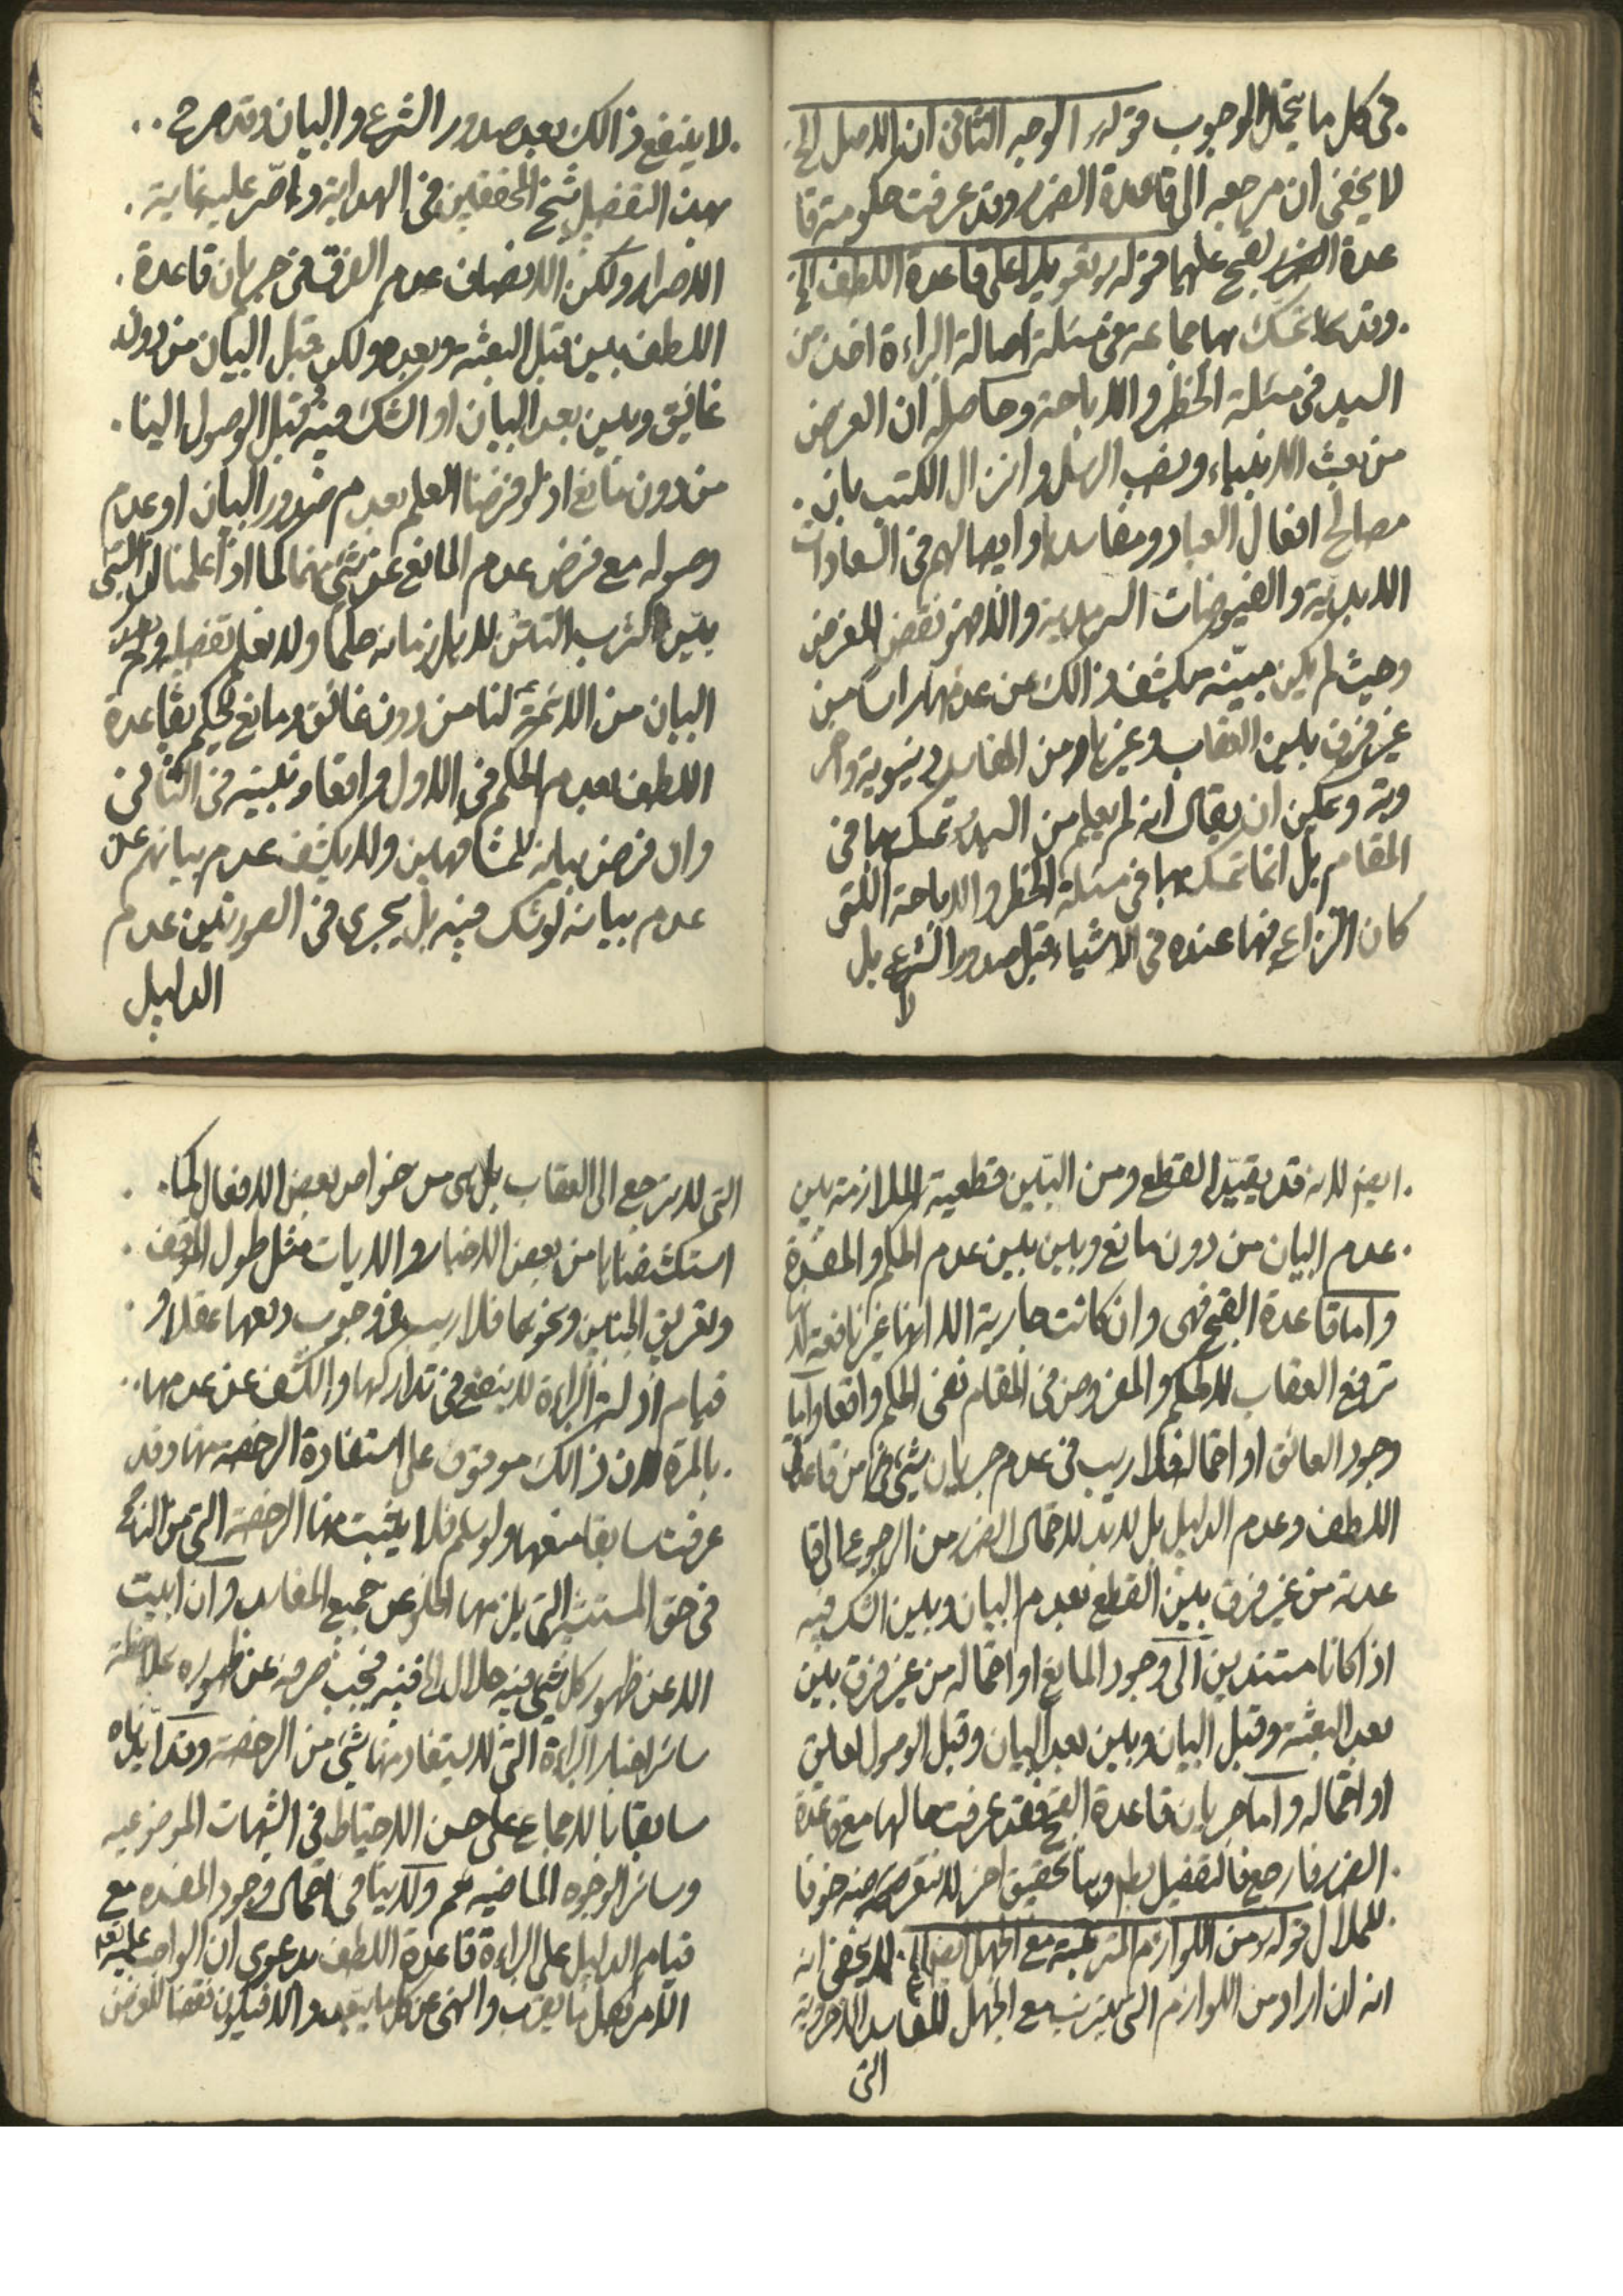 في كل ما يحتمل الوجوب قوله الوجه الثاني ان الاصل الخ
لا يخفى ان مرجعه الى قاعدة الضرر وقد عرفت حكومة قا
عدة القبح عليها قوله تعويلا على قاعدة اللطف الخ
وقد تمسك بها جماعة في مسئلة اصالة البراءة اخذا من
السيد في مسئلة الحظر والاباحة وحاصله ان الغرض
من بعث الانبياء ونصب الرسل وانزال الكتب بيان
مصالح افعال العباد ومفاسدها وايصالهم في السعادات
الابدية والفيوضات السرمدية والا فهو نقض للغرض
وحيث لم يكن مبينه يكشف ذالك عن عدمها راسا من
غير فرق بين العقاب وغيرها من المفاسد دنيوية واخر
وية ويمكن ان يقال انه لم يعلم من السيد تمسك بها في
المقام بل انما تمسك بها في مسئلة الحظر والاباحة اللتي
كان النزاع فيها عنده في الاشياء قبل صدور الشرع بل
لا
لا ينفع ذالك بعد صدور الشرع والبيان وقد صرح
بهذا التفصيل شيخ المحققين في الهداية واصر عليه غاية
الاصرار ولكن الانصاف عدم الفرق في جريان قاعدة
اللطف بين قبل البعثة وبعده ولكن قبل البيان من دون
عائق وبين بعد البيان او الشك فيه قبل الوصول الينا
من دون مانع اذ لو فرضنا العلم بعدم صدور البيان او عدم
وصوله مع فرض عدم المانع عن شئ منهما كما اذا علمنا ان النبي
بين لشرب التتن لاهل زمانه حكما ولا نعلم تفصيله ولم يصل
البيان من الائمة لنا من دون عائق ومانع لحكم بقاعدة
اللطف بعدم الحكم في الاول واقعا وتبينه في الثاني
وان فرض بيانه للمشافهين ولا يكشف عدم بيانهم عن
عدم بيانه لو شك فيه بل يجري في الصورتين عدم
الدليل
ايضا لانه قد يقيد القطع ومن البين قطعية الملازمة بين
عدم البيان من دون مانع وبين بين عدم الحكم والمفسدة
واما قاعدة القبح فهي وان كانت جارية الا انها غير نافعة لانها
ترفع العقاب لا الحكم والمفروض في المقام نفى الحكم واقعا واما
وجود العائق او احتماله فلا ريب في عدم جريان شئ من قاعدة
اللطف وعدم الدليل بل لا بد لاحتمال الضرر من الرجوع الى قا
عدته من غير فرق بين القطع بعدم البيان وبين الشك فيه
اذا كانا مستندين الى وجود المانع او احتماله من غير فرق بين
بعد البعثة وقبل البيان وبين بعد البيان وقبل الوصول لعائق
او احتماله واما جريان قاعدة القبح فقد عرفت حالها مع قاعدة
الضرر فارجع فالتفصيل بط وهنا تحقيق اخر لا نتعرضه خوفا
للملال قوله من اللوازم المترتبة مع الجهل ايضا الخ لا يخفى انه
انه ان اراد من اللوازم التي يترتب مع الجهل المفاسد الاخروية
التي
التي لا ترجع الى العقاب بل هي من خواص بعض الافعال كما
استكشفناها من بعض الاخبار والايات مثل طول الموقف
وتفريق الجنابين ونحوهما فلا ريب في وجوب دفعها عقلا و
قيام ادلة البراءة لا ينفع في تداركها والكشف عن عدمها
بالمرة لان ذالك موقوف على استفادة الرخصة منها وقد
عرفت سابقا منعها ولو سلم فلا يثبت منها الرخصة التي من الشارع
في حق المستبين التي يلزمها الخلو عن جميع المفاسد وان ابيت
الا عن ظهور كل شئ فيه حلال الخ فيه فيجب صرفه عن ظهوره بملاحظة
سائر اخبار البراءة التي لا يستفاد منها شئ من الرخصة وقد ايدناه
سابقا بالاجماع على حسن الاحتياط في الشبهات الموضوعيه
وسائر الوجوه الماضيه نعم ولا ينافي احتمال وجود المفسده مع
قيام الدليل على البراءة قاعدة اللطف بدعوى ان الواجب عليه تعالى
الامر بكل ما يقرب والنهى عن كل ما يبعد والا فيكون نقضا للغرض